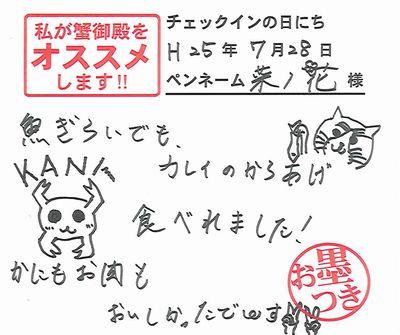 私が蟹御殿を
オススメ
します!!
チェックインの日にち
H25年7月28日
ペンネーム 菜ノ花 様
魚ぎらいでも、
カレイのからあげ
KANI
食べれました!
かにもお肉も
おいしかったでーす
お墨つき